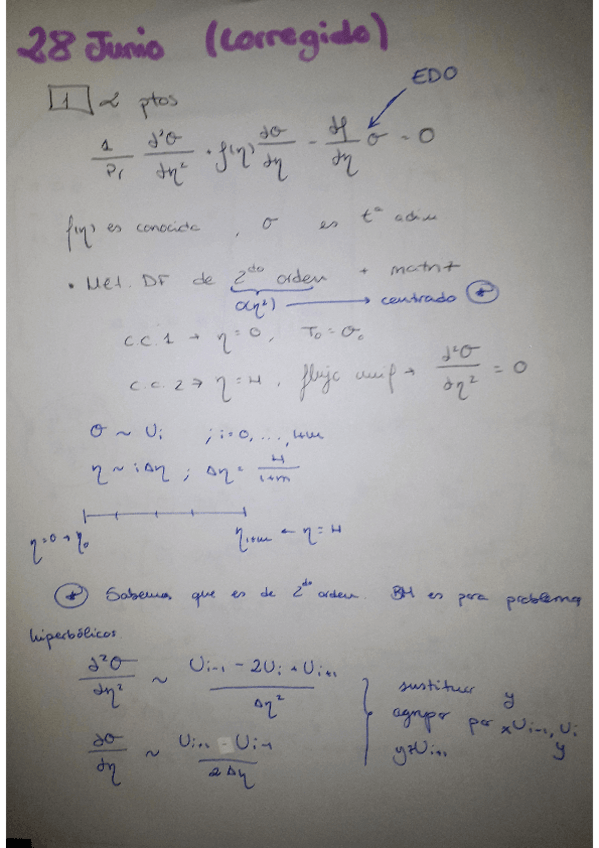 28 Junio (corregido)
EDO
1 2 ptos
1/Pr d²σ/dη² + f(η) dσ/dη - df/dη σ = 0
f(η) es conocida, σ es tª adim
• Met. DF de 2do orden + matriz
O(η²) → centrado *
c.c.1 → η=0, T0=σ0
c.c.2 → η=H, flujo unif → d²σ/dη² = 0
σ ~ Ui ; i=0,...,1+m
η ~ iΔη ; Δη = H/1+m
η=0 → η0 η1+m ← η=H
* Sabemos que es de 2do orden. BH es para problemas
hiperbólicos
d²σ/dη² ~ Ui-1 - 2Ui + Ui+1 / Δη²
sustituir y
agrupar por xUi-1, Ui
yzUi+1 y
dσ/dη ~ Ui+1 - Ui-1 / 2Δη